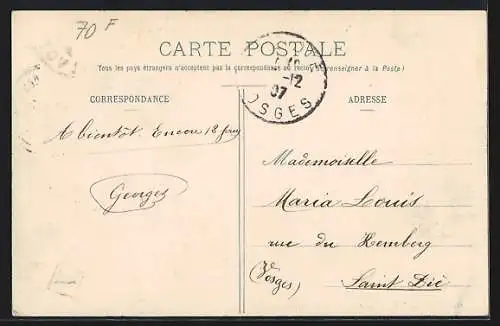 70 F
CARTE POSTALE
Tous les pays étrangers n'acceptent pas la correspondance au recto (se renseigner à la Poste)
CORRESPONDANCE
ADRESSE
-12
07
OSGES
A bientôt. Encore 12
Georges
Mademoiselle
Maria Louis
rue du Kemberg
(Vosges)
Saint Dié